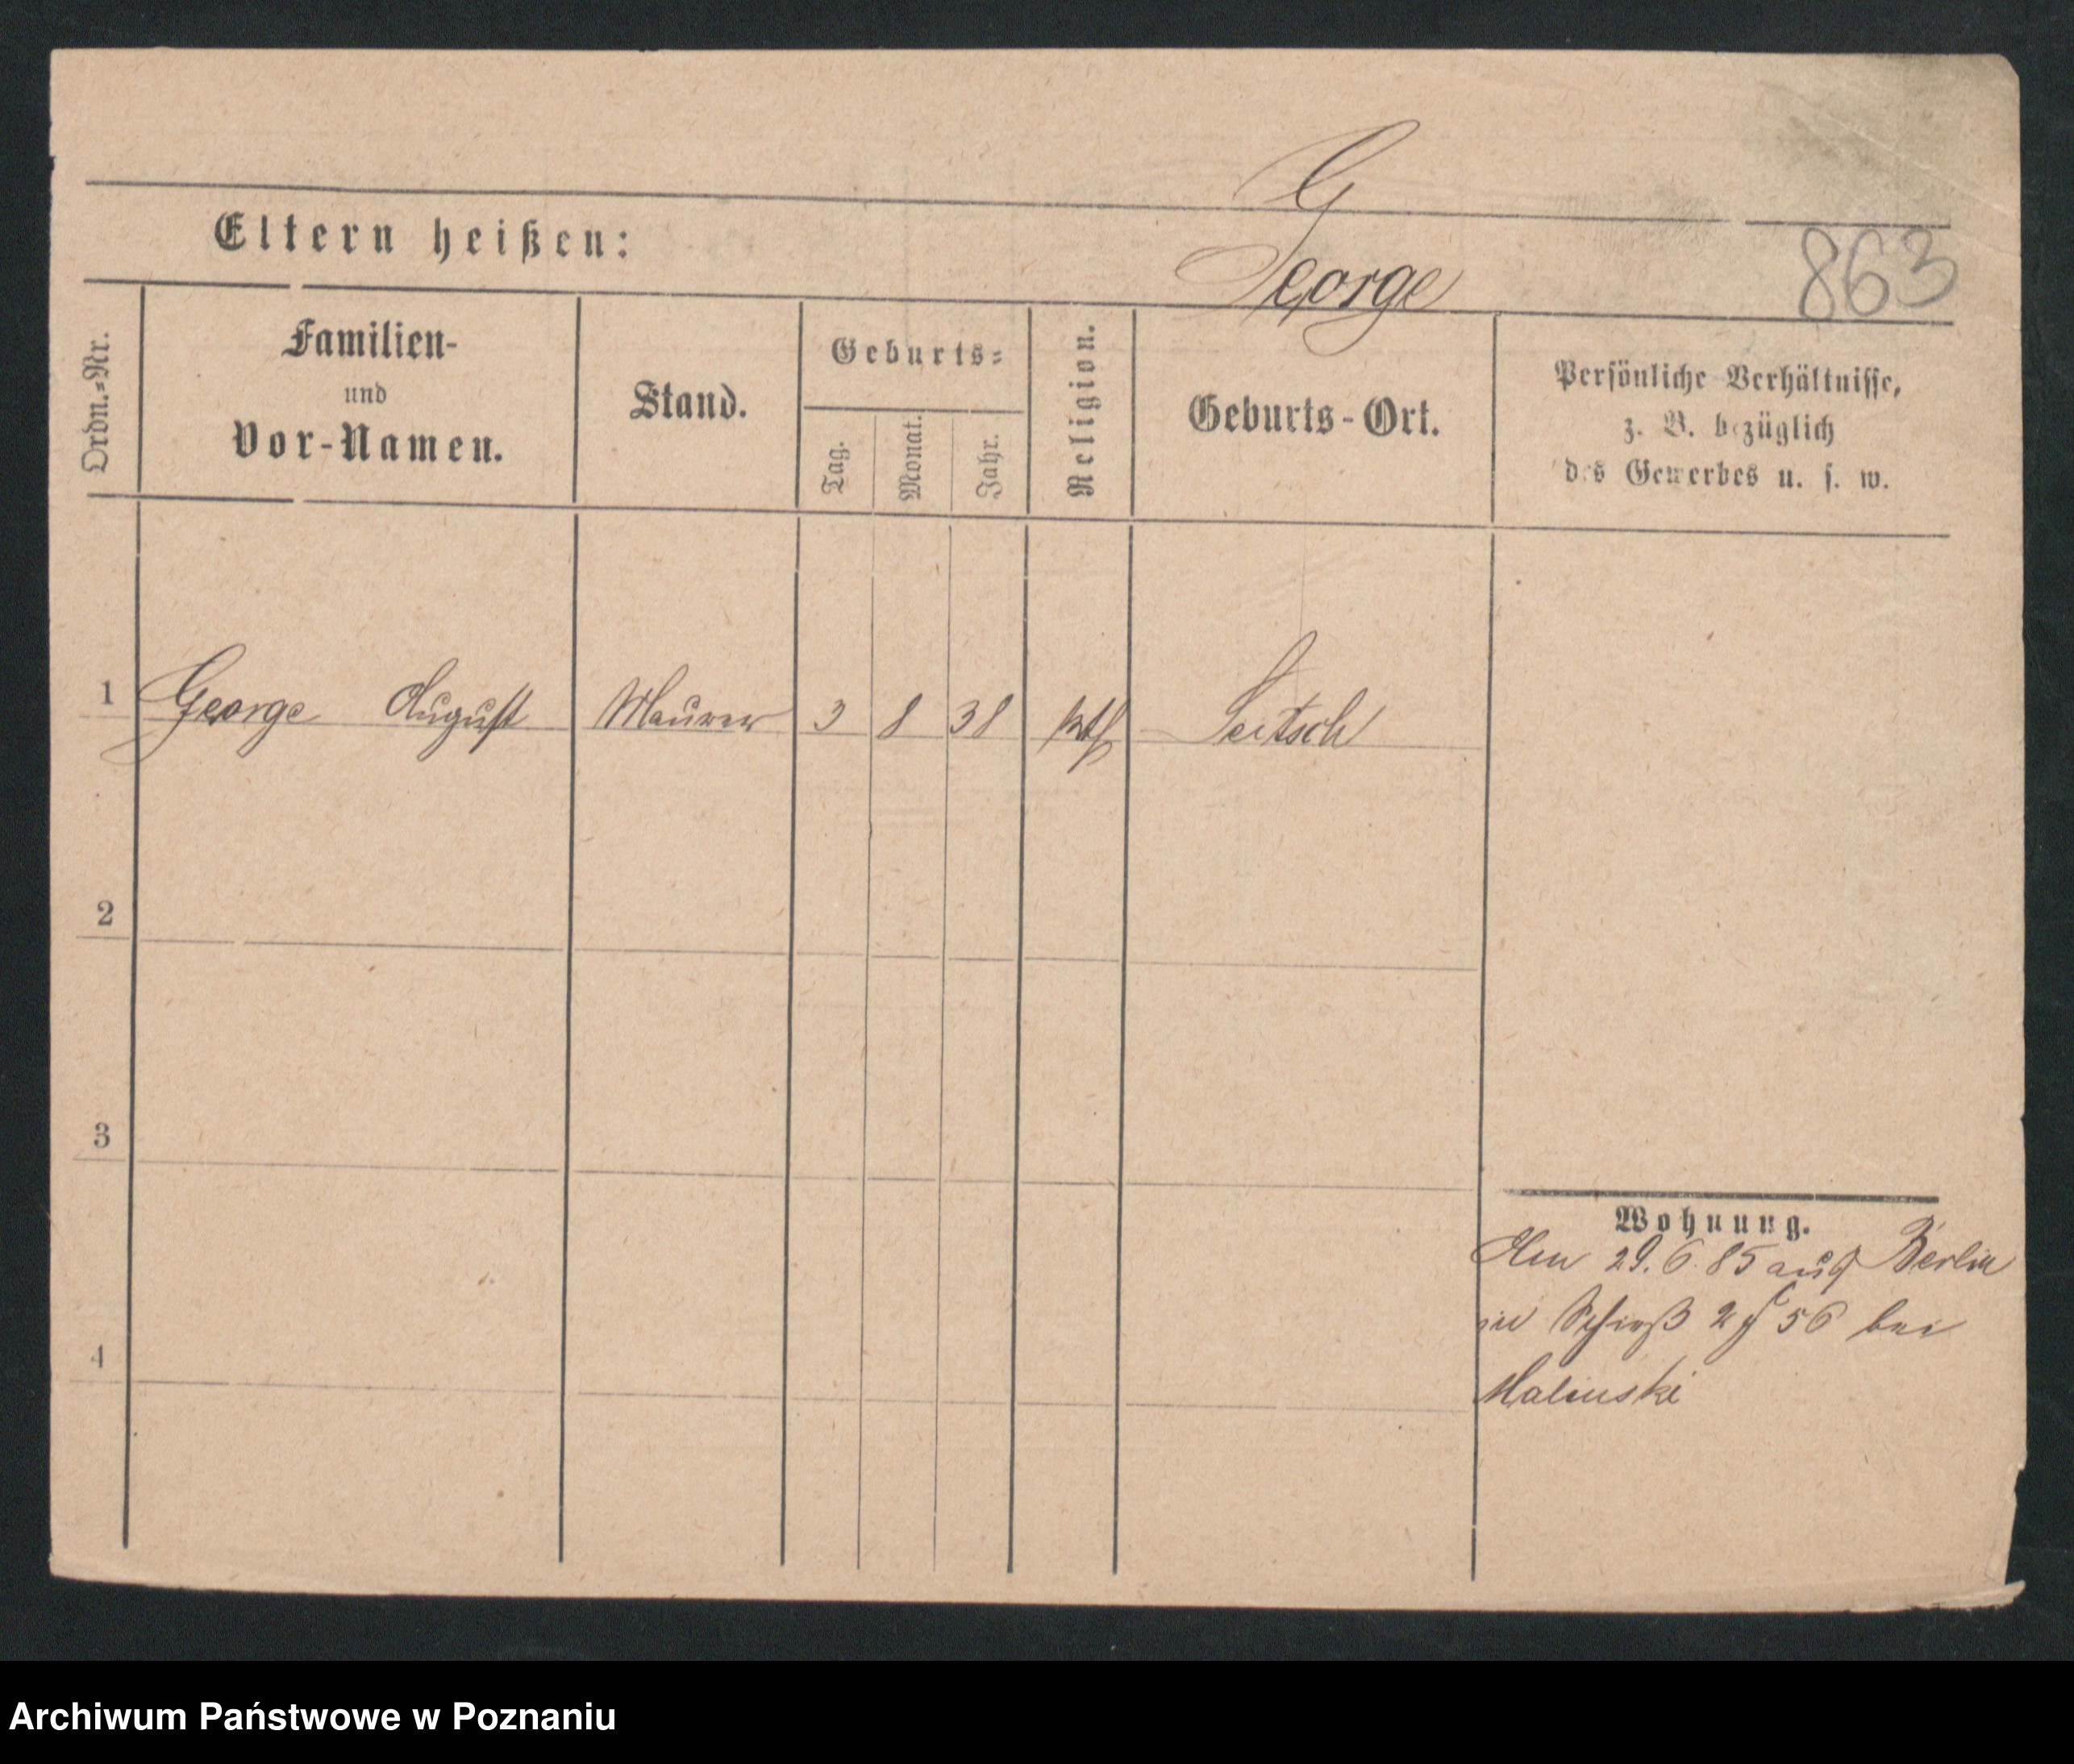 G
Eltern heißen:
George
863
Ordn.=Nr.
Familien-
und
Vor-Namen.
Stand.
Geburts=
Tag.
Monat.
Jahr.
Religion.
Geburts-Ort.
Persönliche Verhältnisse,
z. B. bezüglich
des Gewerbes u. s. w.
1 George August Maurer 3 8 38 kth
2
3
4
Wohnung.
29.6.85 aus Berlin
in 56 bei
Malinski
Archiwum Państwowe w Poznaniu